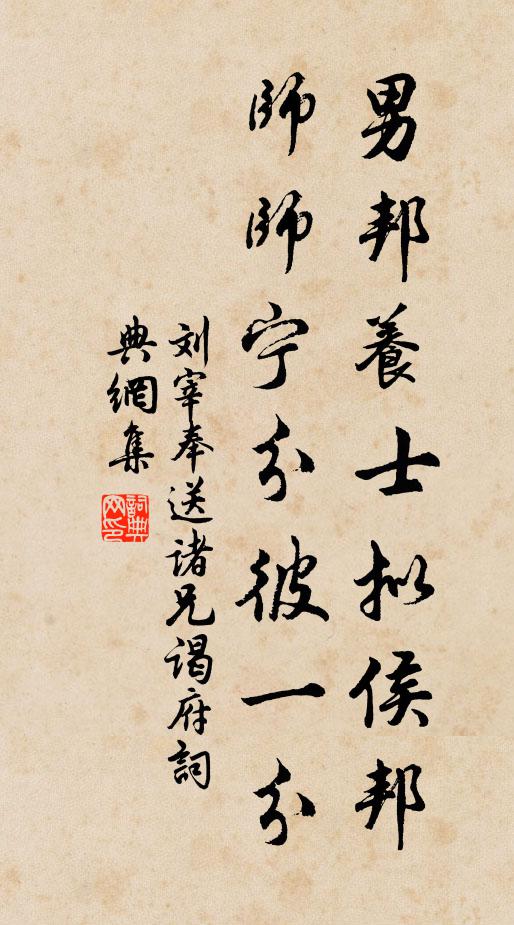 男邦養士拟侯邦
師師宁分彼一分
刘宰奉送诸兄谒府詞
典網集
詞典
网印